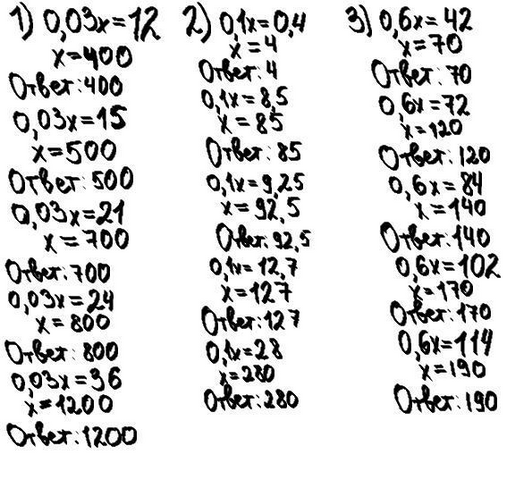 1) 0,03x=12
x=400
Ответ:400
0,03x=15
x=500
Ответ: 500
0,03x=21
x=700
Ответ:700
0,03x=24
x=800
Ответ: 800
0,03x=36
x=1200
Ответ:1200
2) 0,1x=0,4
x=4
Ответ: 4
0,1x=8,5
x=85
Ответ: 85
0,1x=9,25
x=92,5
Ответ: 92,5
0,1x=12,7
x=127
Ответ:127
0,1x=28
x=280
Ответ:280
3) 0,6x=42
x=70
Ответ: 70
0,6x=72
x=120
Ответ: 120
0,6x=84
x=140
Ответ:140
0,6x=102
x=170
Ответ: 170
0,6x=114
x=190
Ответ: 190